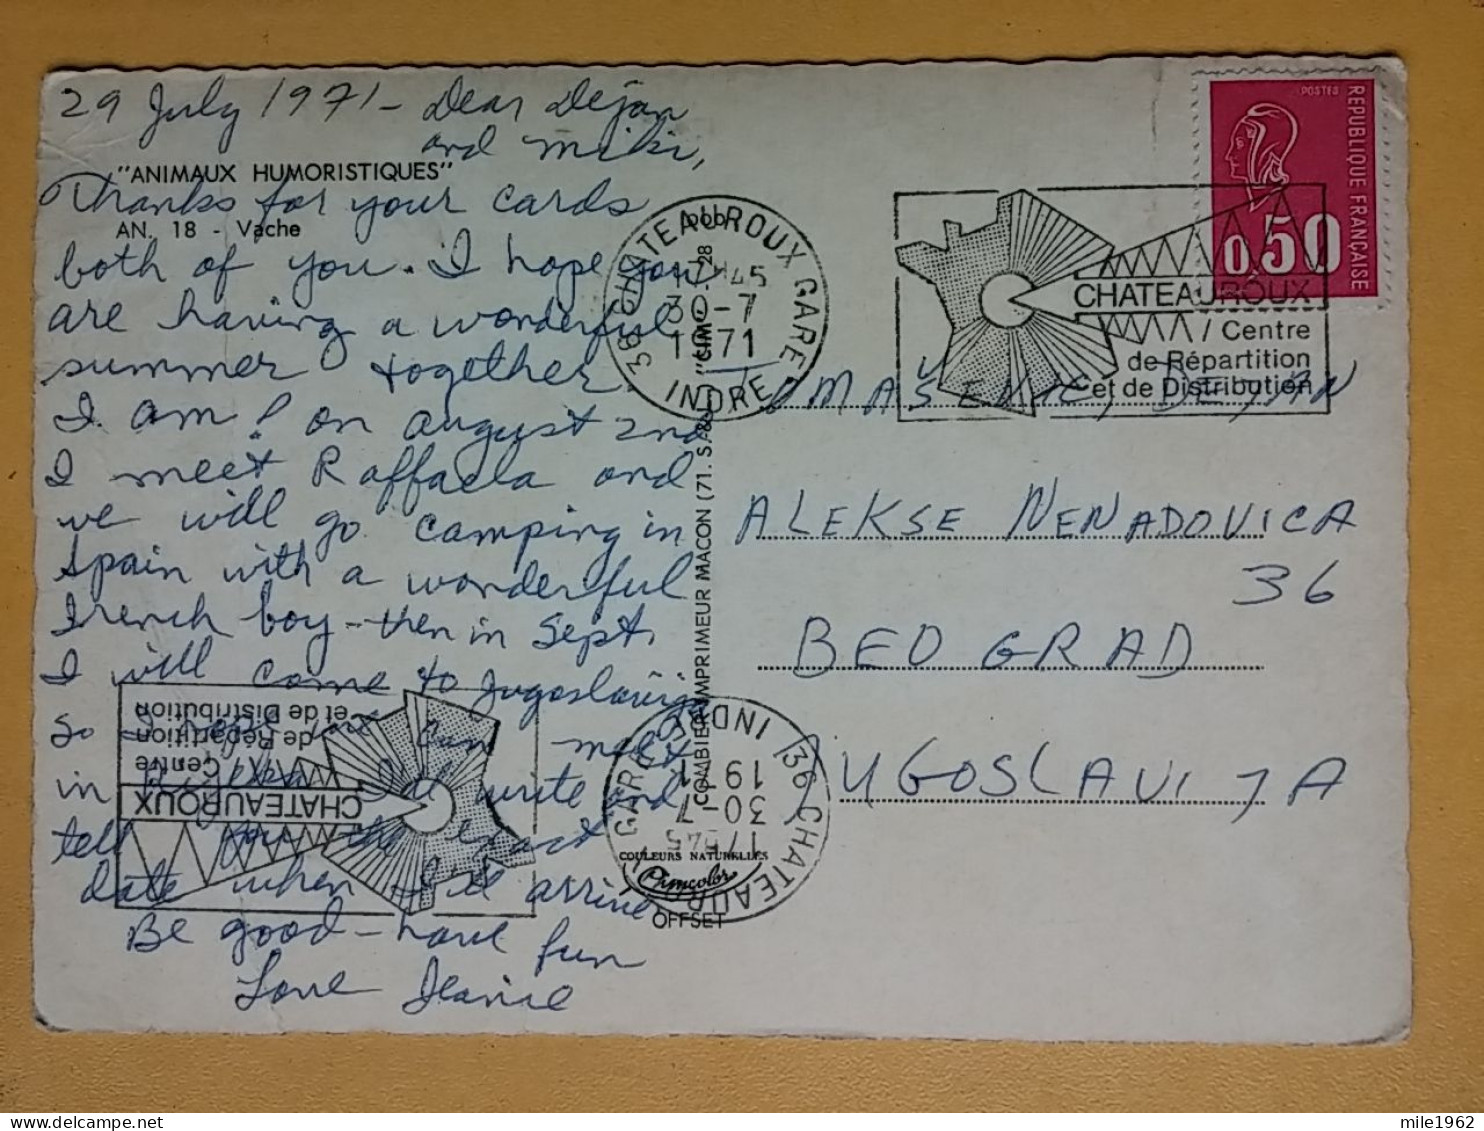 29 July 1971 - Dear Dejan
and Miki,
"ANIMAUX HUMORISTIQUES"
Thanks for your cards
AN. 18 - Vache
both of you. I hope you
are having a wonderful
summer together.
I am! On August 2nd
I meet Raffaela and
we will go camping in
Spain with a wonderful
French boy - then in Sept.
I will come to Jugoslavija
so I hope we can meet
in I'll write and
tell you the exact
date when I'll arrive.
Be good - have fun
Love Jeanie
COMBIER IMPRIMEUR MACON (71. S.-&-L.) "CIM"
COULEURS NATURELLES
OFFSET
36 CHATEAUROUX GARE
17H45
30-7
1971
INDRE
CHATEAUROUX
Centre
de Répartition
et de Distribution
POSTES
REPUBLIQUE FRANÇAISE
0,50
DEJAN
ALEKSE NENADOVICA
36
BEOGRAD
JUGOSLAVIJA
36 CHATEAUROUX GARE
17H45
30-7
1971
INDRE
CHATEAUROUX
Centre
de Répartition
et de Distribution
mile1962